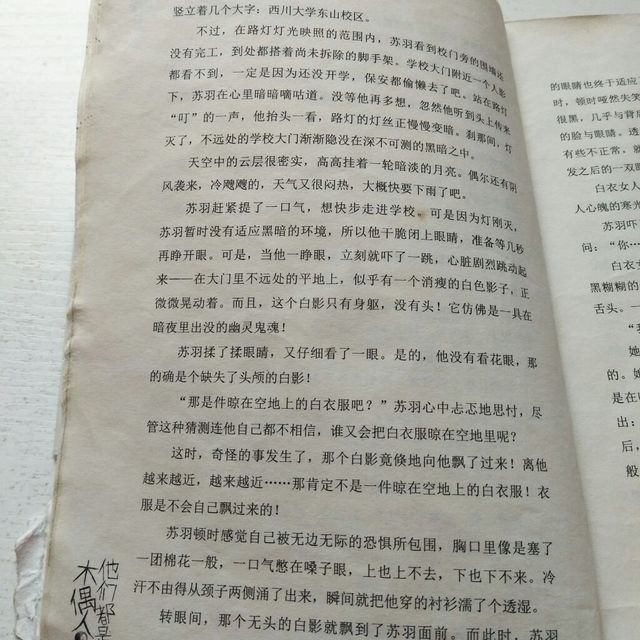 竖立着几个大字：西川大学东山校区。
不过，在路灯灯光映照的范围内，苏羽看到校门旁的围墙还
没有完工，到处都搭着尚未拆除的脚手架。学校大门附近一个人影
都看不到，一定是因为还没开学，保安都偷懒去了吧。站在路灯
下，苏羽在心里暗暗嘀咕道。没等他再多想，忽然他听到头上传来
“叮”的一声，他抬头一看，路灯的灯丝正慢慢变暗。刹那间，灯
灭了，不远处的学校大门渐渐隐没在深不可测的黑暗之中。
天空中的云层很密实，高高挂着一轮暗淡的月亮。偶尔还有阴
风袭来，冷飕飕的，天气又很闷热，大概快要下雨了吧。
苏羽赶紧提了一口气，想快步走进学校。可是因为灯刚灭，
苏羽暂时没有适应黑暗的环境，所以他干脆闭上眼睛，准备等几秒
再睁开眼。可是，当他一睁眼，立刻就吓了一跳，心脏剧烈跳动起
来——在大门里不远处的平地上，似乎有一个消瘦的白色影子，正
微微晃动着。而且，这个白影只有身躯，没有头！它仿佛是一具在
暗夜里出没的幽灵鬼魂！
苏羽揉了揉眼睛，又仔细看了一眼。是的，他没有看花眼，那
的确是个缺失了头颅的白影！
“那是件晾在空地上的白衣服吧？”苏羽心中忐忑地思忖，尽
管这种猜测连他自己都不相信，谁又会把白衣服晾在空地里呢？
这时，奇怪的事发生了，那个白影竟倏地向他飘了过来！离他
越来越近，越来越近……那肯定不是一件晾在空地上的白衣服！衣
服是不会自己飘过来的！
苏羽顿时感觉自己被无边无际的恐惧所包围，胸口里像是塞了
一团棉花一般，一口气憋在嗓子眼，上也上不去，下也下不来。冷
汗不由得从颈子两侧涌了出来，瞬间就把他穿的衬衫濡了个透湿。
转眼间，那个无头的白影就飘到了苏羽面前。而此时，苏羽
他们都是
木偶人
的眼睛也终于适应
时，顿时哑然失笑
很黑，几乎与背后
的脸与眼睛。透
有些不正常，就
发之后的一双眼
白衣女人
人心魄的寒光
苏羽吓
问：“你…
白衣女
黑糊糊的
舌头。一
“我
她
的。她
是在
出：
后，
般，